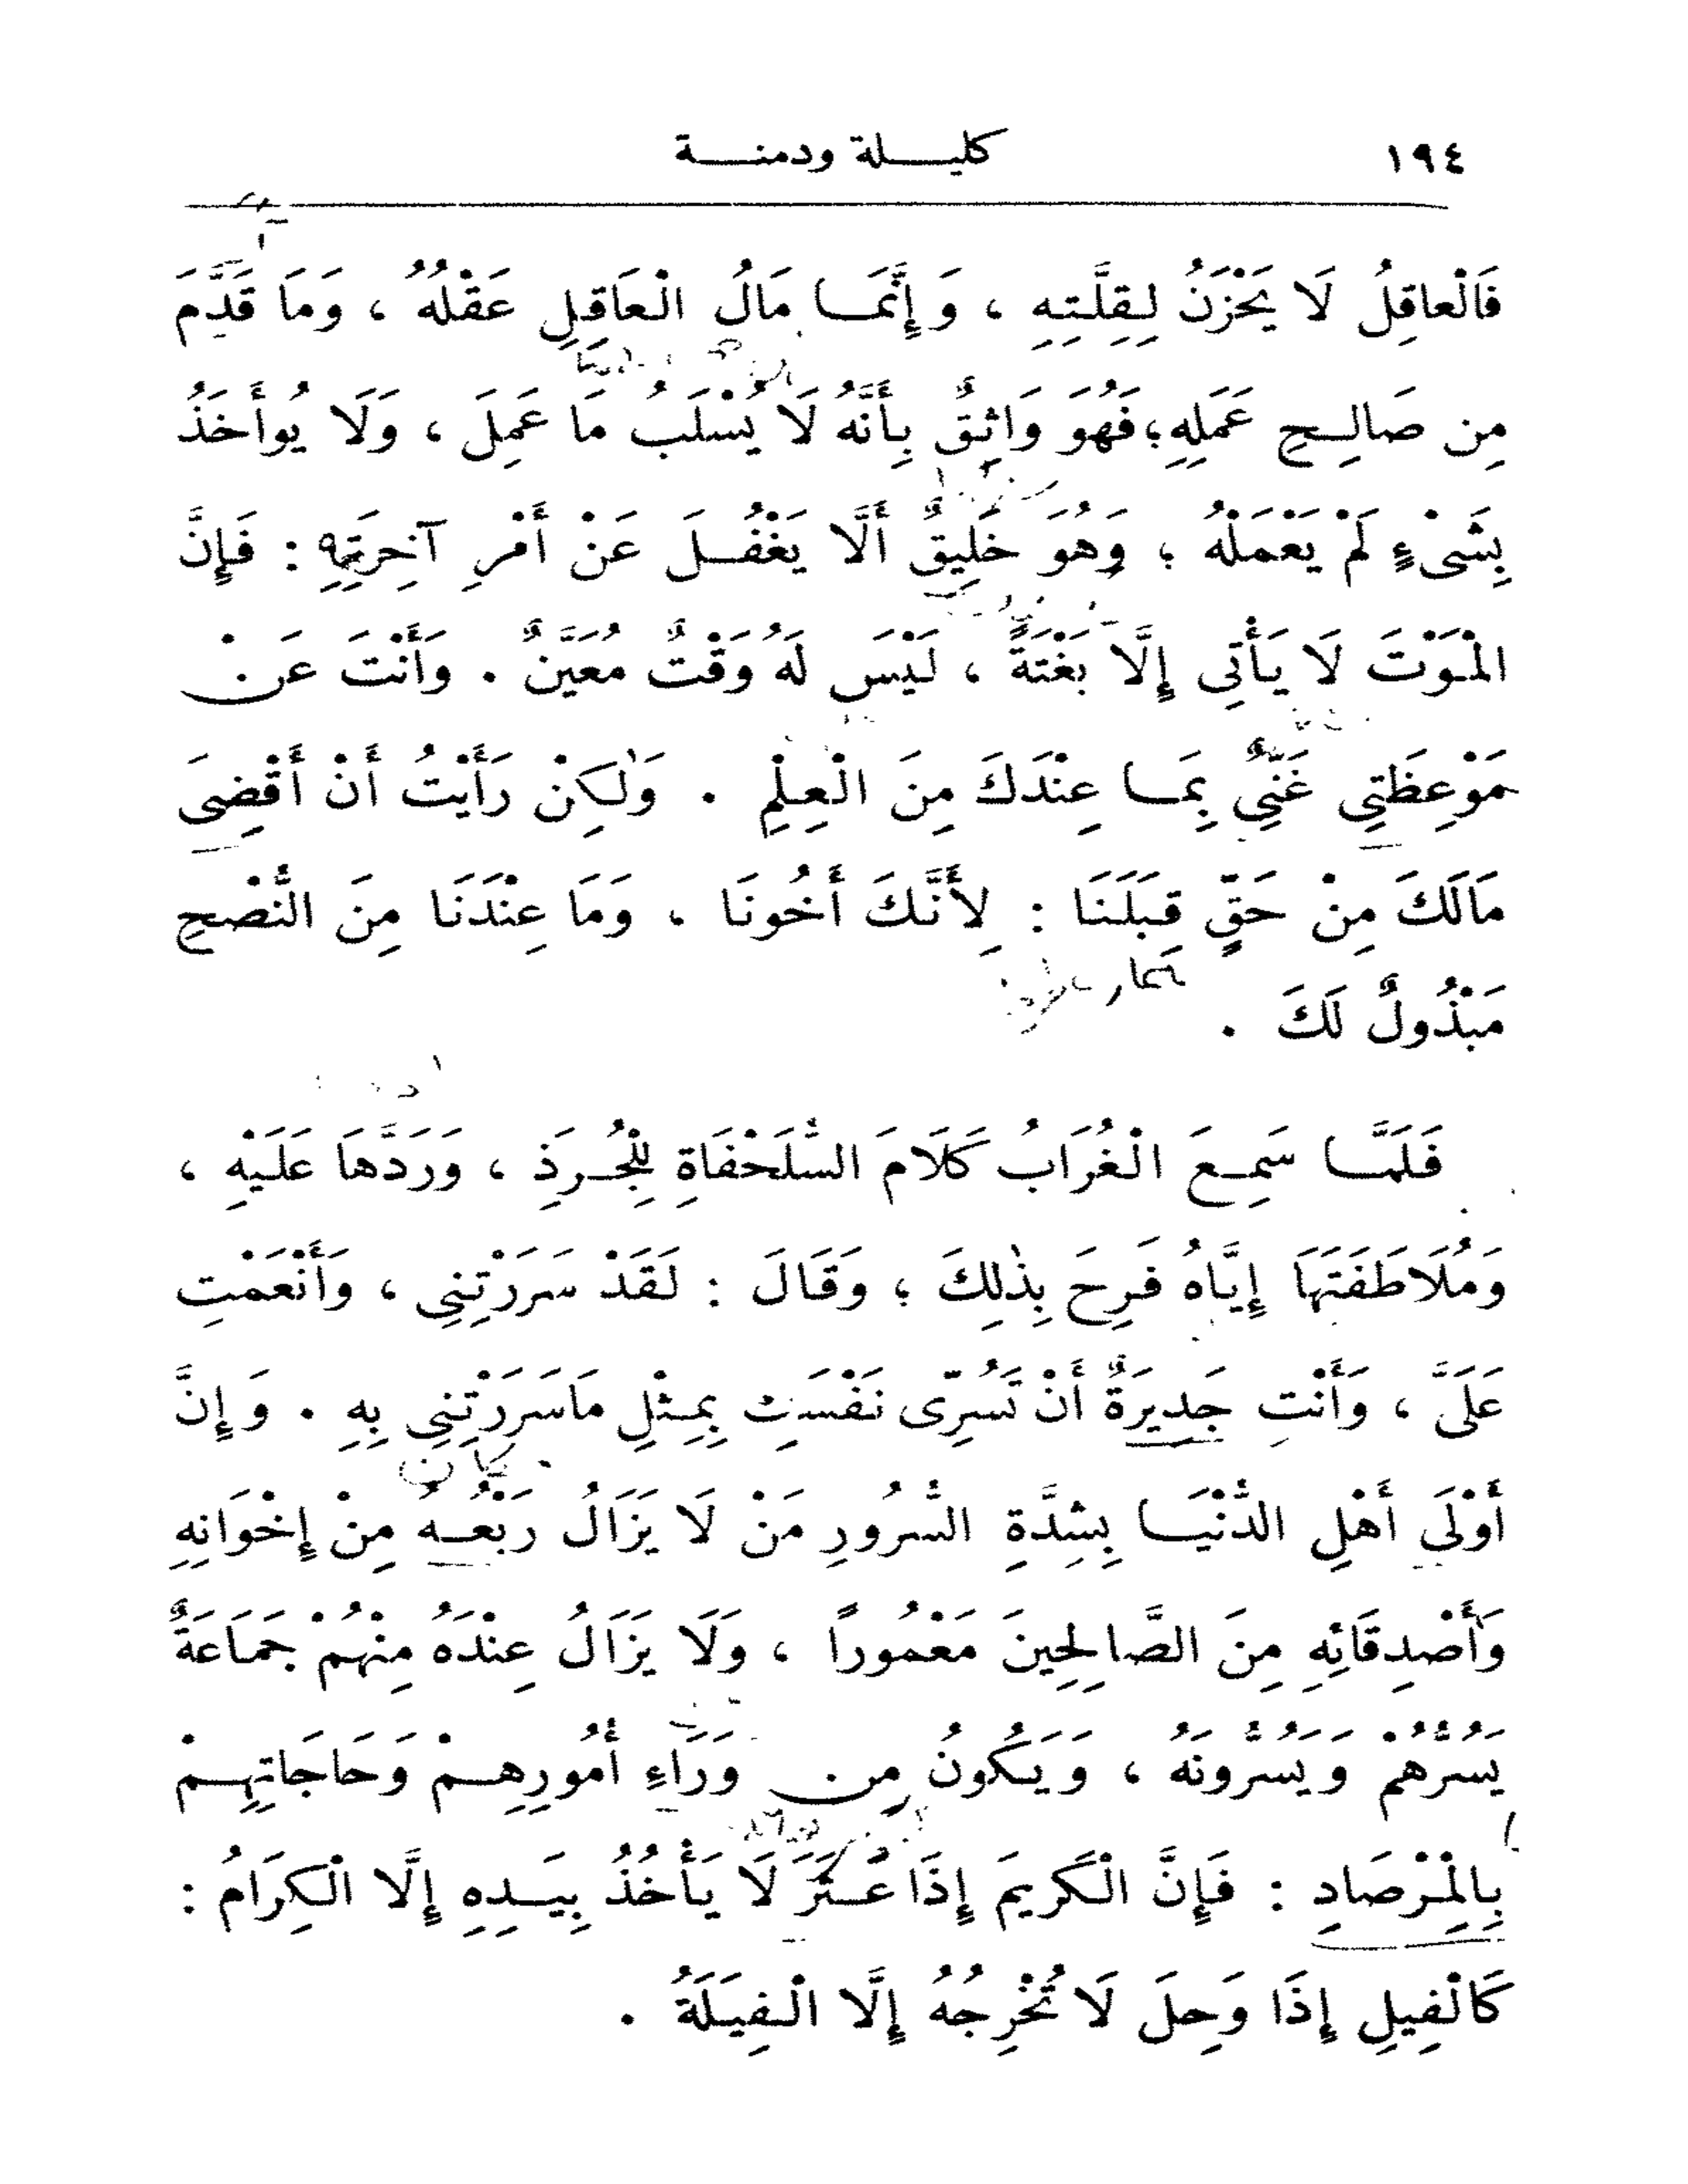 ١٩٤ كليلة ودمنة
فَالْعاقِلُ لَا يَحْزَنُ لِقِلَّتِهِ ، وَ إِنَّمَا مَالُ الْعَاقِلِ عَقْلُهُ ، وَمَا قَدَّمَ
مِن صَالِحِ عَمَلِهِ؛ فَهُوَ وَاثِقٌ بِأَنَّهُ لَا يُسْلَبُ مَا عَمِلَ ، وَلَا يُوأَخَذُ
بِشَىْءٍ لَمْ يَعْمَلْهُ ؛ وَهُوَ خَلِيقٌ أَلَّا يَغْفُلَ عَنْ أَمْرِ آخِرَتِهِ : فَإِنَّ
الْمَوْتَ لَا يَأْتِى إِلَّا بَغْتَةً ، لَيْسَ لَهُ وَقْتٌ مُعَيَّنٌ . وَأَنْتَ عَنْ
مَوْعِظَتِى غَنِّىٌ بِمَا عِنْدَكَ مِنَ الْعِلْمِ . وَلٰكِنْ رَأَيْتُ أَنْ أَقْضِىَ
مَالَكَ مِنْ حَقٍّ قِبَلَنَا : لِأَنَّكَ أَخُونَا ، وَمَا عِنْدَنَا مِنَ النُّصْحِ
مَبْذُولٌ لَكَ .
فَلَمَّا سَمِعَ الْغُرَابُ كَلَامَ السُّلَحْفَاةِ لِلْجُرَذِ ، وَرَدَّهَا عَلَيْهِ ،
وَمُلَاطَفَتَهَا إِيَّاهُ فَرِحَ بِذٰلِكَ ؛ وَقَالَ : لَقَدْ سَرَرْتِنِى ، وَأَنْعَمْتِ
عَلَىَّ ، وَأَنْتِ جَدِيرَةٌ أَنْ تَسُرِّى نَفْسَكِ بِمِثْلِ مَاسَرَرْتِنِى بِهِ . وَإِنَّ
أَوْلَى أَهْلِ الدُّنْيَا بِشِدَّةِ السُّرُورِ مَنْ لَا يَزَالُ رَبْعُهُ مِنْ إِخْوَانِهِ
وَأَصْدِقَائِهِ مِنَ الصَّالِحِينَ مَعْمُوراً ، وَلَا يَزَالُ عِنْدَهُ مِنْهُمْ جَمَاعَةٌ
يَسُرُّهُمْ وَيَسُرُّونَهُ ، وَيَكُونُ مِن وَرَاءِ أُمُورِهِمْ وَحَاجَاتِهِمْ
بِالْمِرْصَادِ : فَإِنَّ الْكَرِيمَ إِذَا عَثَرَ لَا يَأْخُذُ بِيَدِهِ إِلَّا الْكِرَامُ :
كَالْفِيلِ إِذَا وَحِلَ لَا تُخْرِجُهُ إِلَّا الْفِيَلَةُ .